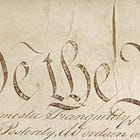 We the
domestic Tranquility
Posterity, do ordain